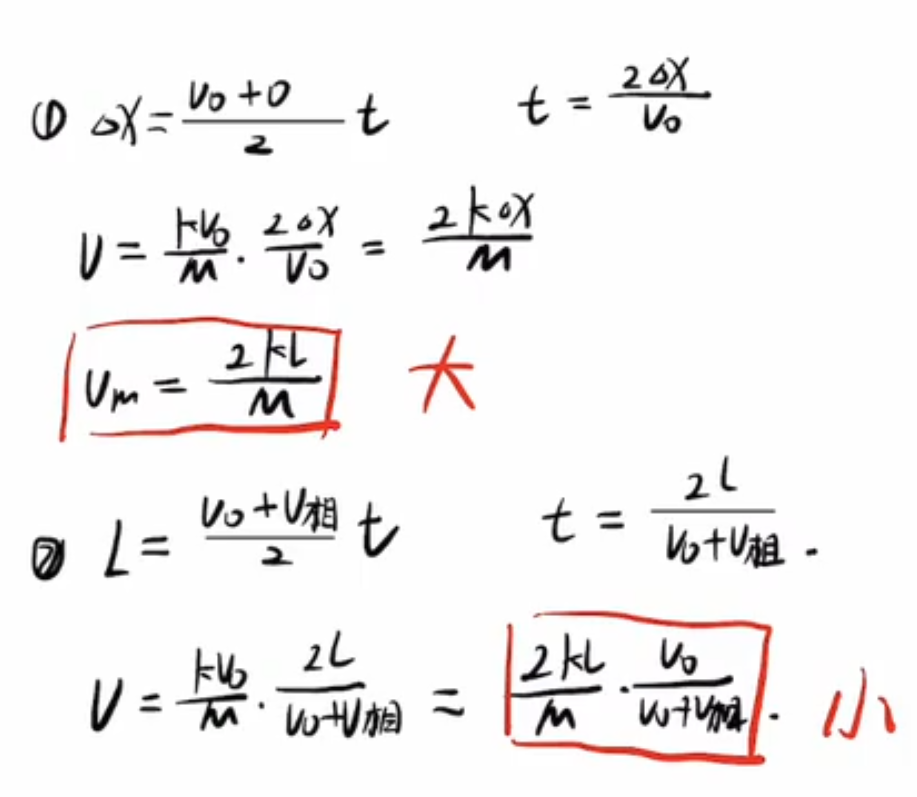 ① △X = (V₀+0)/2 t    t = 2△X/V₀
V = kV₀/M · 2△X/V₀ = 2k△X/M
Vm = 2kL/M    大
② L = (V₀+V相)/2 t    t = 2L/(V₀+V相).
V = kV₀/M · 2L/(V₀+V相) = 2kL/M · V₀/(V₀+V相).    小